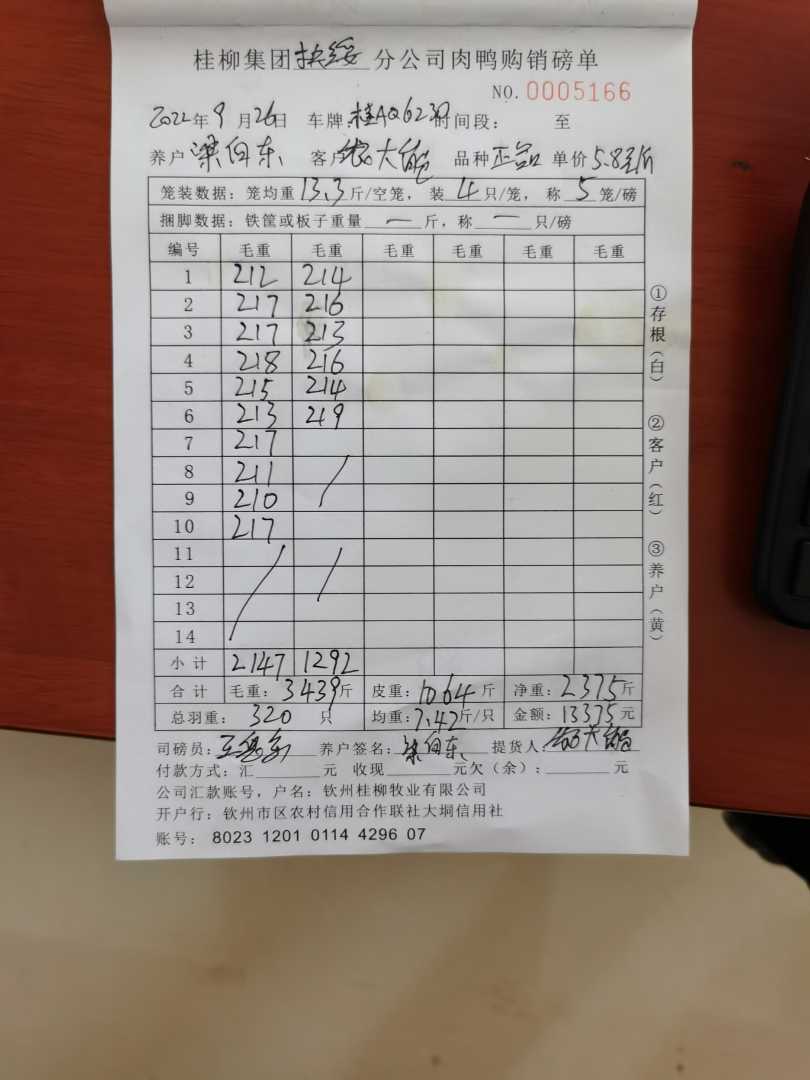 桂柳集团扶绥分公司肉鸭购销磅单
NO. 0005166
2022年9月26日 车牌:桂AQ623 时间段: 至
养户 梁伯东 客户 大 品种 正品 单价 5.8元/斤
笼装数据:笼均重13.3斤/空笼,装4只/笼,称5笼/磅
捆脚数据:铁筐或板子重量一斤,称一只/磅
编号 毛重 毛重 毛重 毛重 毛重 毛重
1 212 214
2 217 216
3 217 213
4 218 216
5 215 214
6 213 219
7 217
8 211
9 210
10 217
11
12
13
14
小计 2147 1292
合计 毛重:3439斤 皮重:1064斤 净重:2375斤
总羽重:320只 均重:7.42斤/只 金额:13375元
司磅员: 养户签名:梁伯东 提货人
付款方式:汇 元 收现 元欠(余): 元
公司汇款账号,户名:钦州桂柳牧业有限公司
开户行:钦州市区农村信用合作联社大垌信用社
账号: 8023 1201 0114 4296 07
①存根(白)
②客户(红)
③养户(黄)